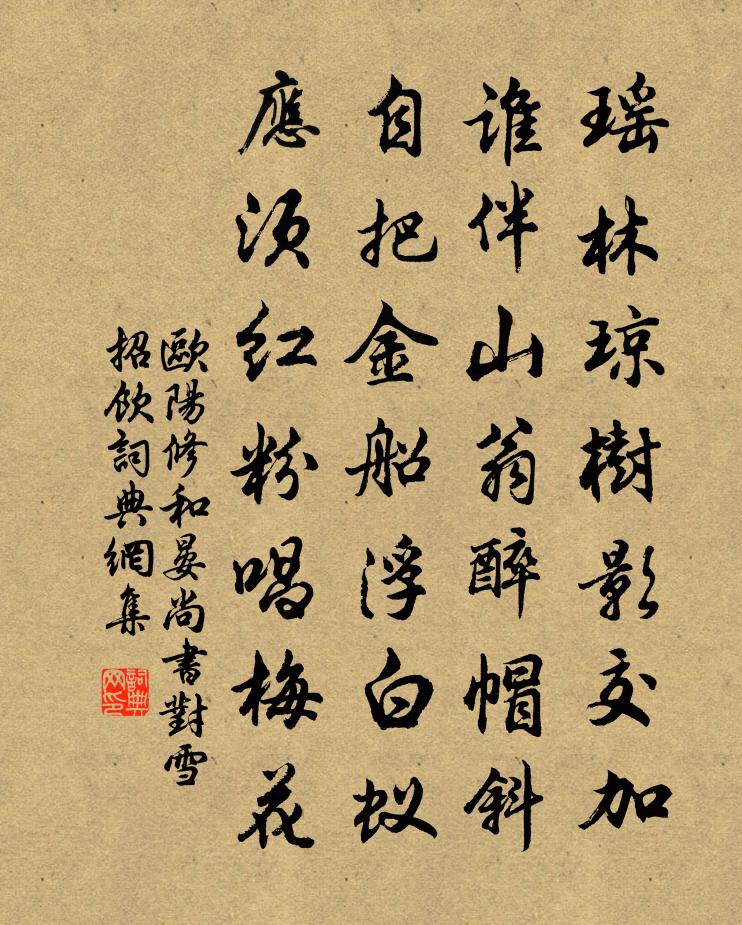 瑶林琼樹影交加
誰伴山翁醉帽斜
自把金船浮白蚁
應须红粉唱梅花
歐陽修和晏尚書對雪
招飲詞典網集
詞典
网印